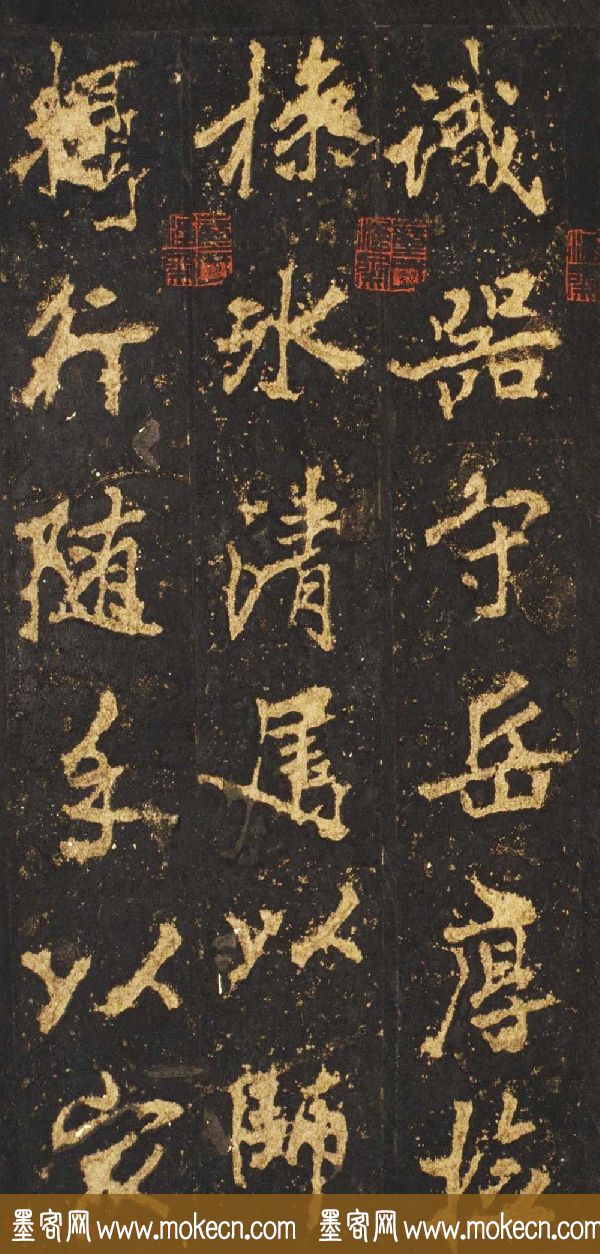 識器守岳厚檢
操冰清以師
行随手以家
墨客网 www.mokecn.com 墨客网 www.mokecn.com